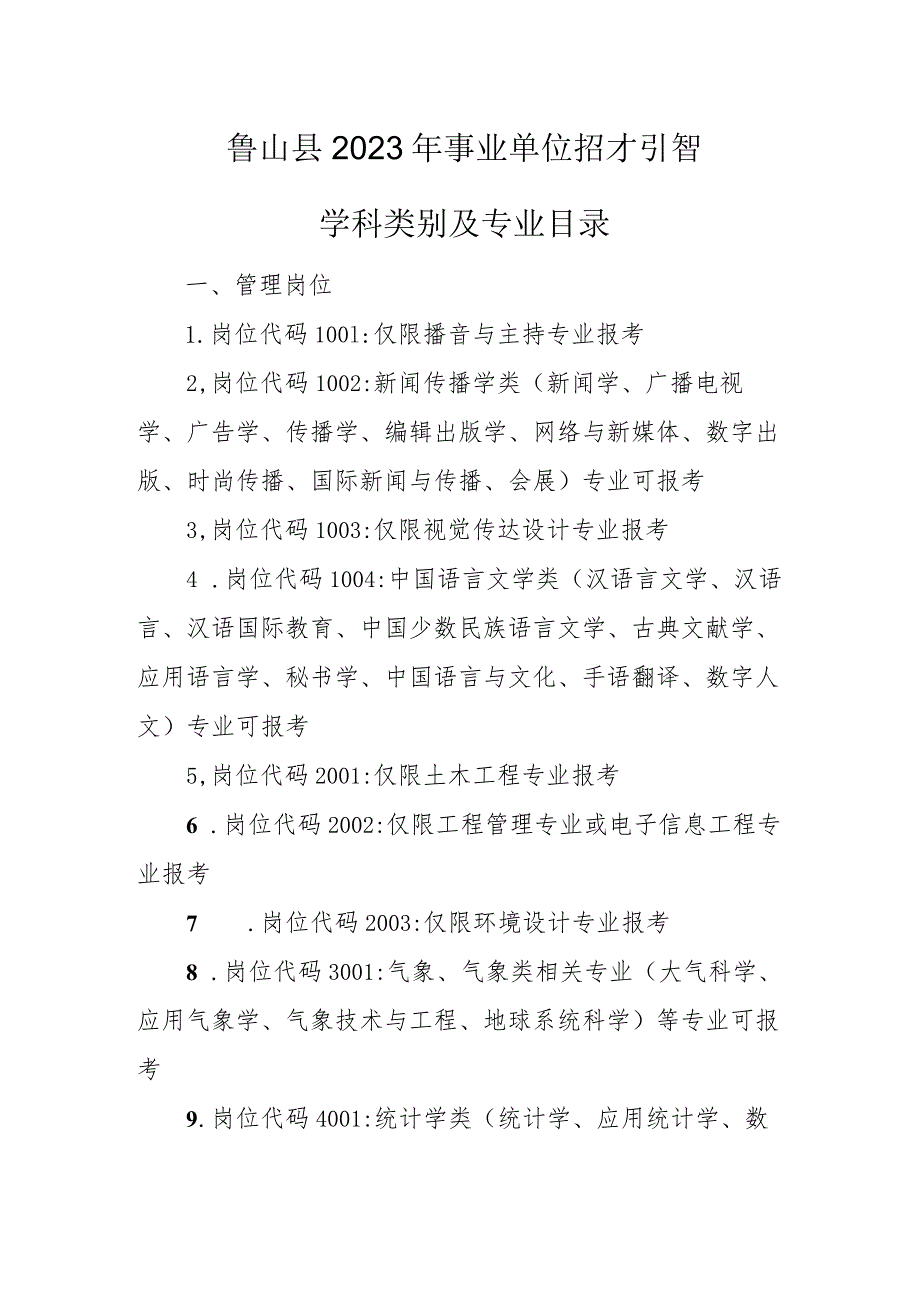 鲁山县2023年事业单位招才引智
学科类别及专业目录
一、管理岗位
1.岗位代码100l:仅限播音与主持专业报考
2,岗位代码1002:新闻传播学类（新闻学、广播电视
学、广告学、传播学、编辑出版学、网络与新媒体、数字出
版、时尚传播、国际新闻与传播、会展）专业可报考
3,岗位代码1003:仅限视觉传达设计专业报考
4 .岗位代码1004:中国语言文学类（汉语言文学、汉语
言、汉语国际教育、中国少数民族语言文学、古典文献学、
应用语言学、秘书学、中国语言与文化、手语翻译、数字人
文）专业可报考
5,岗位代码2001:仅限土木工程专业报考
6 .岗位代码2002:仅限工程管理专业或电子信息工程专
业报考
7 .岗位代码2003:仅限环境设计专业报考
8 .岗位代码3001:气象、气象类相关专业（大气科学、
应用气象学、气象技术与工程、地球系统科学）等专业可报
考
9.岗位代码4001:统计学类（统计学、应用统计学、数